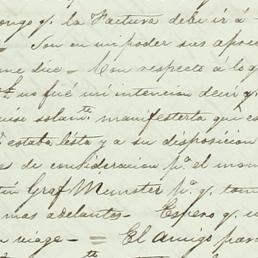 ongo q. la Factura debe ir á
Son en mi poder sus aprec
me dice – Con respecto á lo q
no fué mi intencion decir q.
solamte. manifestarla que es
estaba lista y a su disposicion
de consideracion pa. el
Graf Munster pa. q. tom
mas adelante – Espero q.
viage – = El amigo